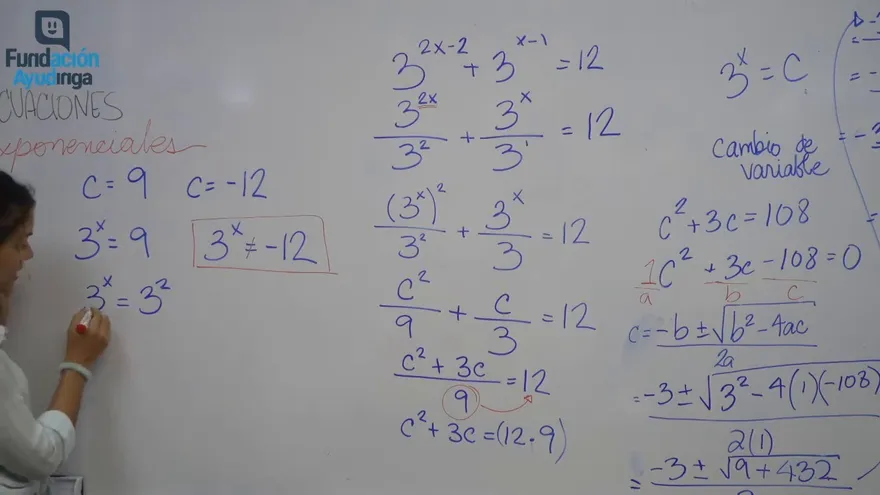 Fundación
Ayudinga
CUACIONES
xponenciales
c = 9   c = -12
3^x = 9   3^x ≠ -12
3^x = 3^2
3^{2x-2} + 3^{x-1} = 12
3^{2x}/3^2 + 3^x/3^1 = 12
(3^x)^2/3^2 + 3^x/3 = 12
c^2/9 + c/3 = 12
(c^2 + 3c)/9 = 12
c^2 + 3c = (12 · 9)
3^x = C
cambio de
variable
c^2 + 3c = 108
1c^2 + 3c - 108 = 0
a b c
c = (-b ± √(b^2 - 4ac))/2a
= (-3 ± √(3^2 - 4(1)(-108)))/2(1)
= -3 ± √(9 + 432)